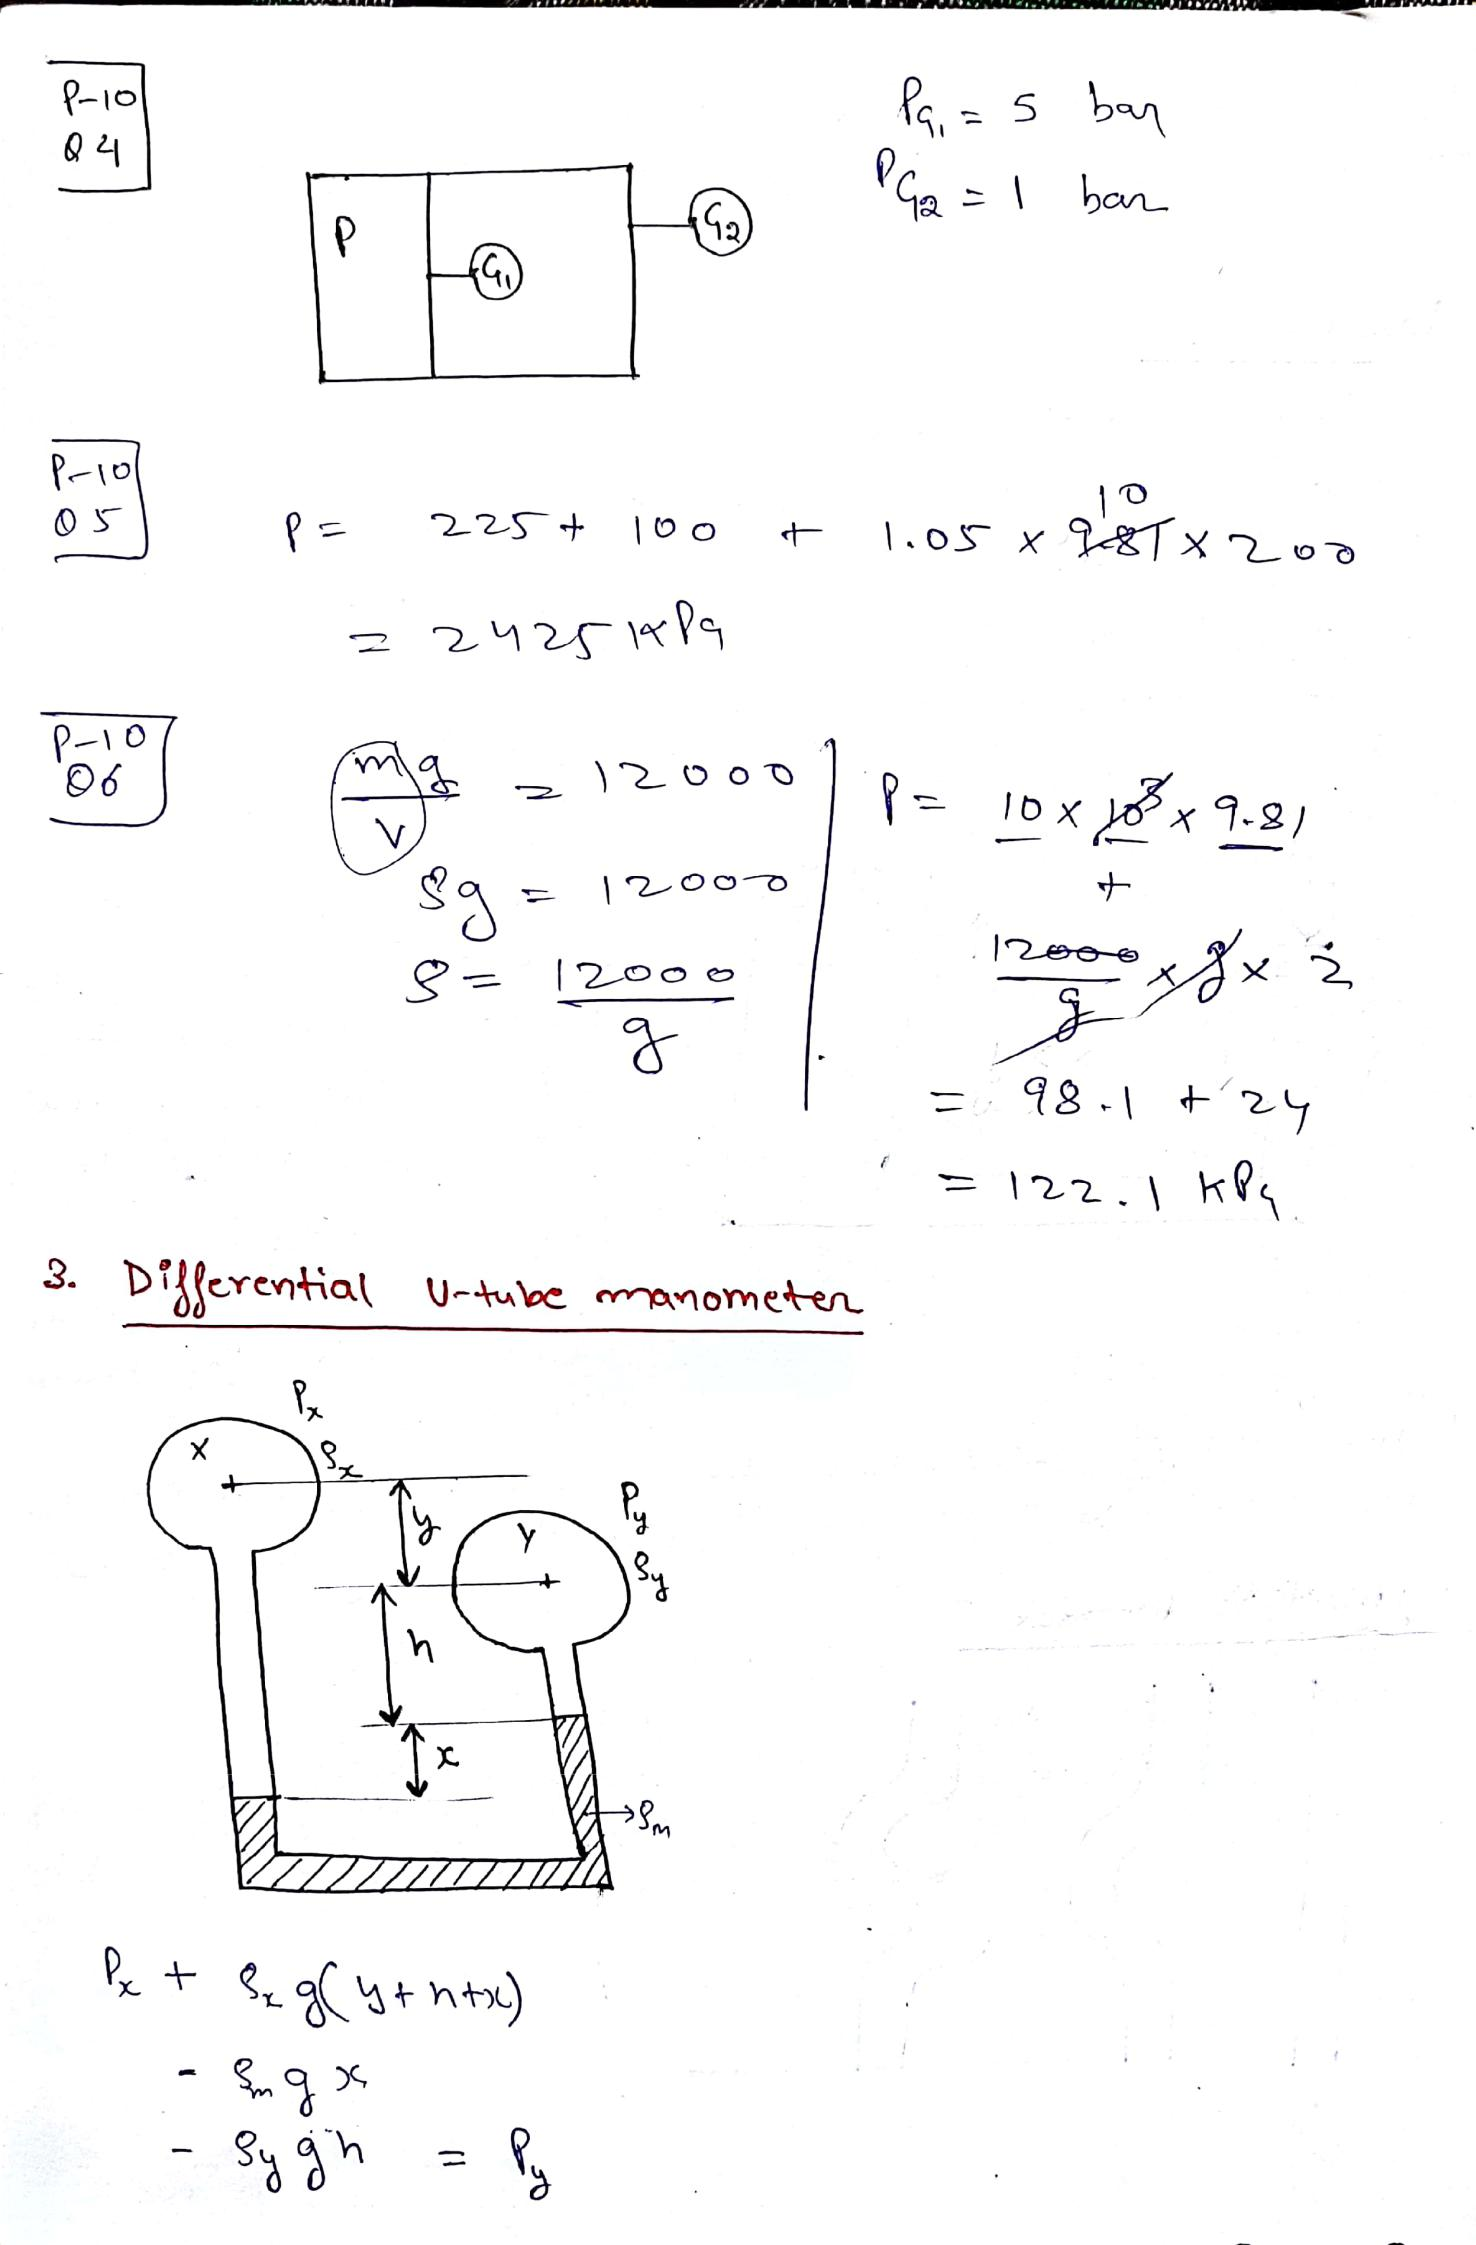 P-10
Q4
P_G1 = 5 bar
P_G2 = 1 bar
P
G1
G2
P-10
Q5
P = 225 + 100 + 1.05 × 9.81 10 × 200
= 2425 kPa
P-10
Q6
mg/V = 12000
ρg = 12000
ρ = 12000/g
P = 10 × 10³ × 9.81
+
12000/g × g × 2
= 98.1 + 24
= 122.1 kPa
3. Differential U-tube manometer
Px
X
ρx
y
Py
Y
ρy
h
x
ρm
Px + ρx g(y+h+x)
- ρm g x
- ρy g h = Py